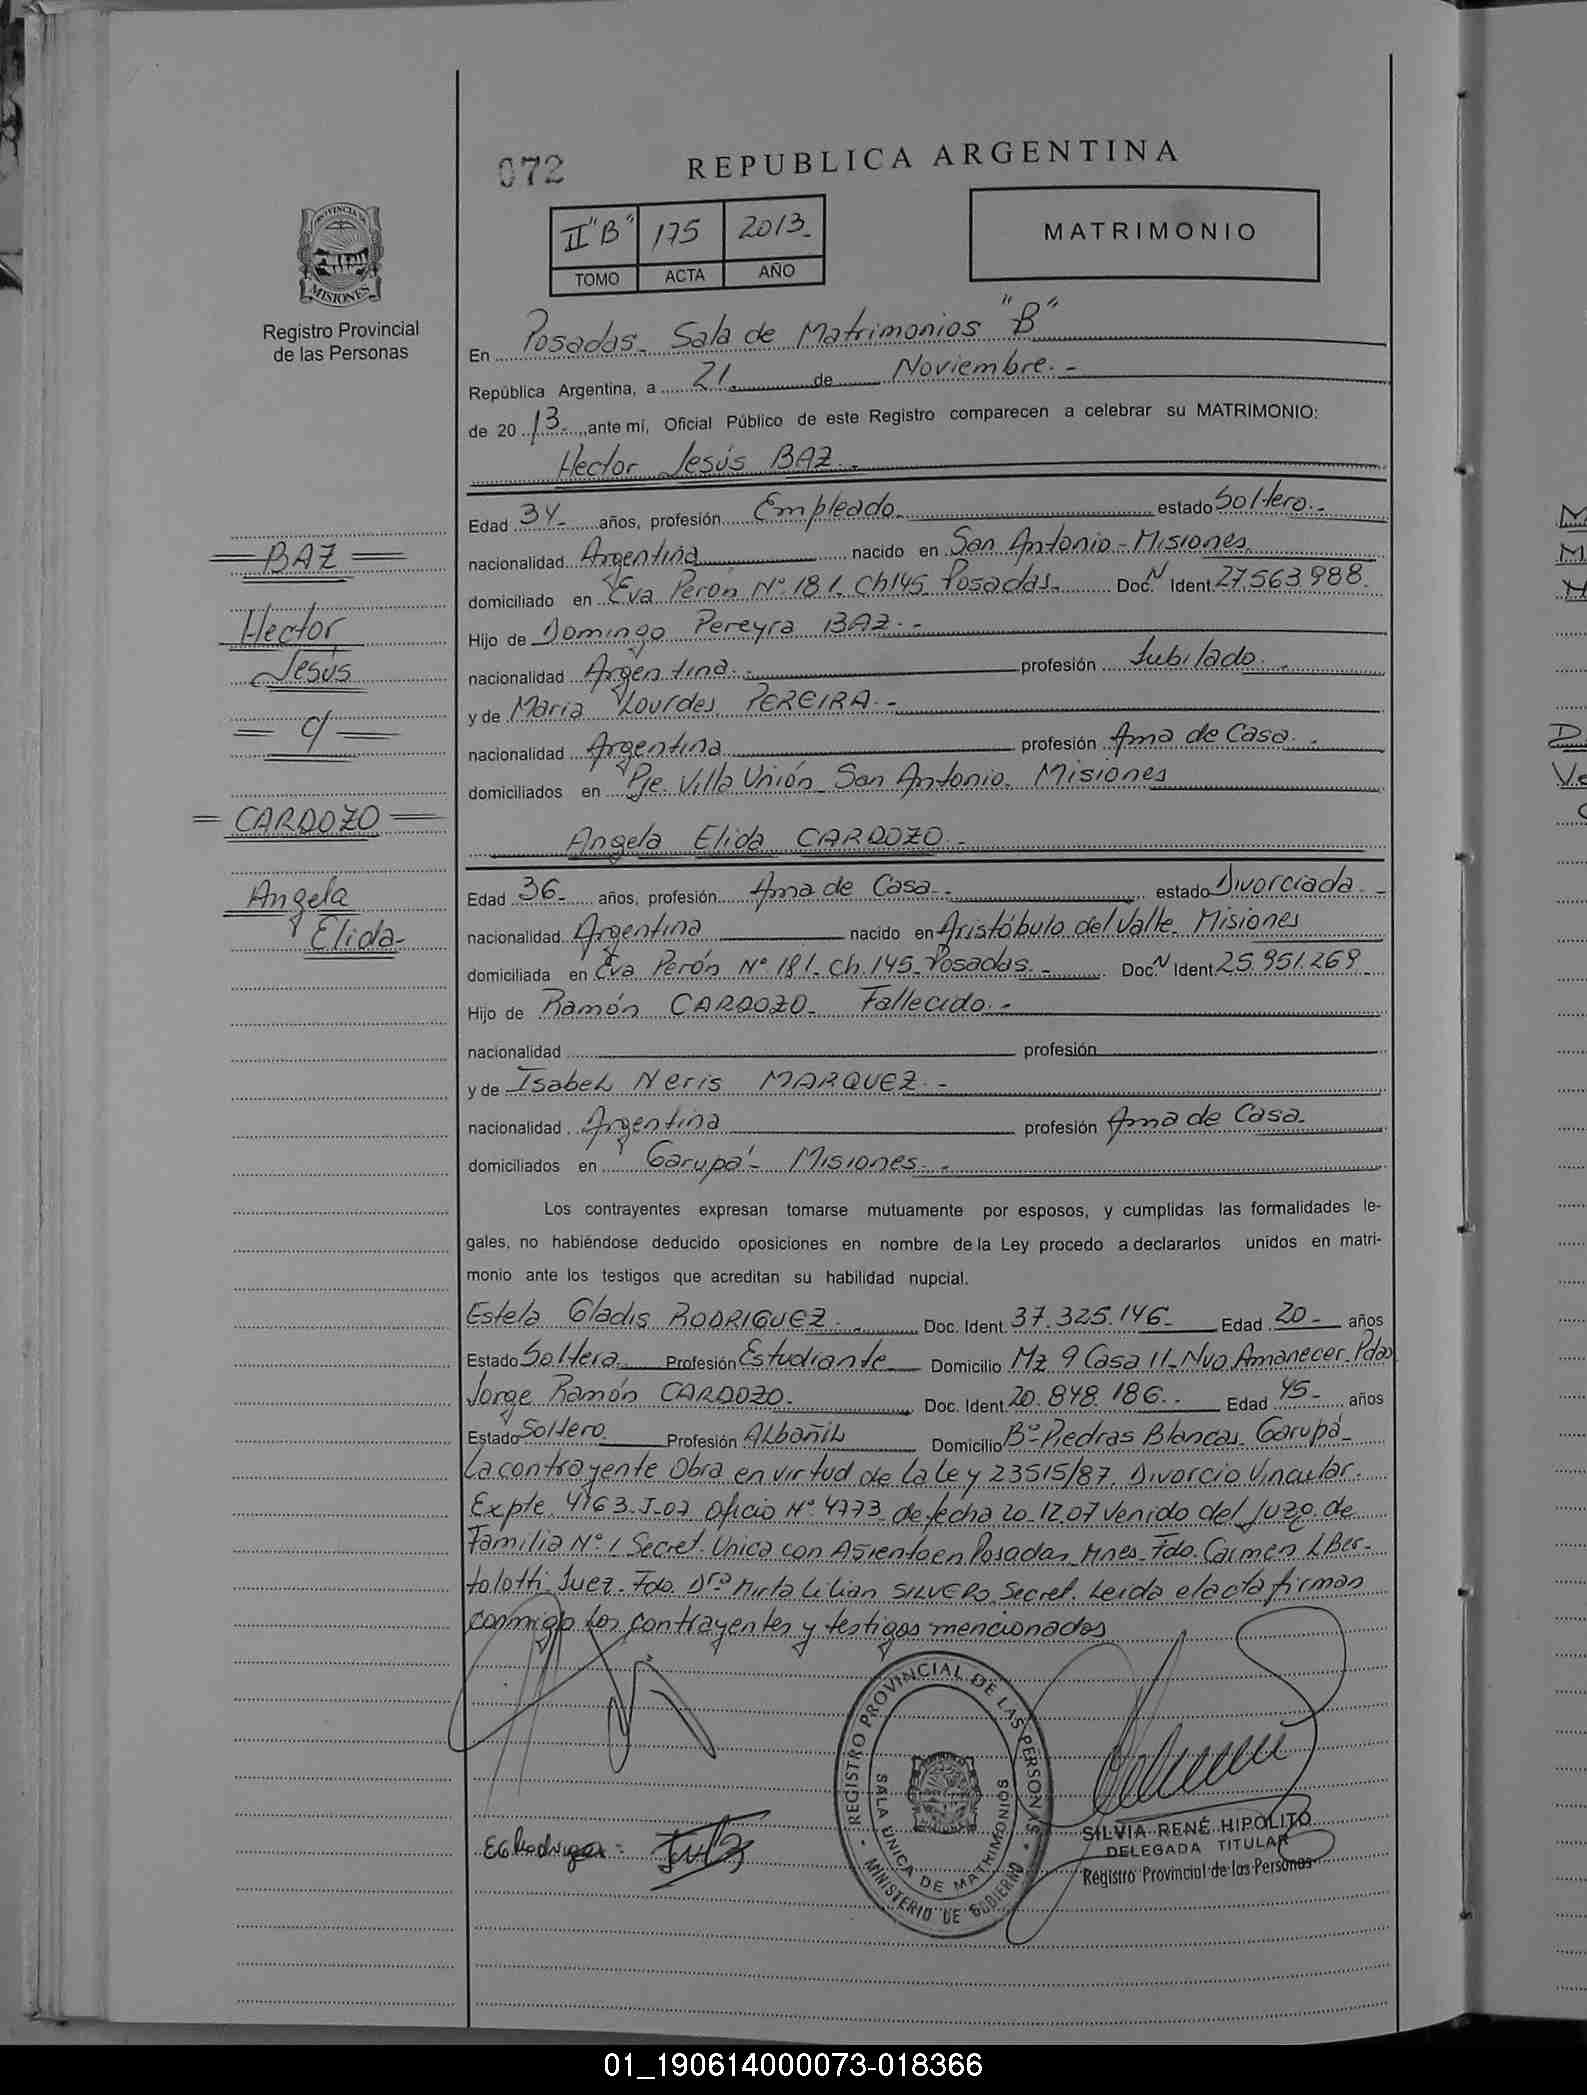 072
REPUBLICA ARGENTINA
II "B" 175 2013.-
TOMO ACTA AÑO
MATRIMONIO
PROVINCIA DE
MISIONES
Registro Provincial
de las Personas
En Posadas.- Sala de Matrimonios "B"
República Argentina, a 21.- de Noviembre.-
de 2013.- ante mí, Oficial Público de este Registro comparecen a celebrar su MATRIMONIO:
Hector Jesús BAZ.-
Edad 34.- años, profesión Empleado.- estado Soltero.-
nacionalidad Argentina nacido en San Antonio - Misiones
domiciliado en Eva Perón N° 181. Ch 145 Posadas.- Doc. N Ident. 27.563.988.
Hijo de Domingo Pereyra BAZ.-
nacionalidad Argentina.- profesión Jubilado.-
y de Maria Lourdes PEREIRA.-
nacionalidad Argentina profesión Ama de Casa.-
domiciliados en Pje. Villa Unión San Antonio. Misiones
Angela Elida CARDOZO.-
Edad 36.- años, profesión Ama de Casa.- estado Divorciada.-
nacionalidad Argentina nacido en Aristóbulo del Valle. Misiones
domiciliada en Eva Perón N° 181. Ch. 145. Posadas.- Doc. N Ident. 25.951.269
Hijo de Ramón CARDOZO.- Fallecido.-
nacionalidad profesión
y de Isabel Neris MARQUEZ.-
nacionalidad Argentina profesión Ama de Casa.
domiciliados en Garupá - Misiones.-
BAZ
Hector
Jesús
c/
CARDOZO
Angela
Elida-
Los contrayentes expresan tomarse mutuamente por esposos, y cumplidas las formalidades le-
gales, no habiéndose deducido oposiciones en nombre de la Ley procedo a declararlos unidos en matri-
monio ante los testigos que acreditan su habilidad nupcial.
Estela Gladis RODRIGUEZ.- Doc. Ident. 37.325.146.- Edad 20.- años
Estado Soltera. Profesión Estudiante Domicilio Mz 9 Casa 11- Nvo Amanecer. Pdas
Jorge Ramón CARDOZO. Doc. Ident. 20.848.186.- Edad 45.- años
Estado Soltero. Profesión Albañil Domicilio B° Piedras Blancas. Garupá-
La contrayente Obra en virtud de la Ley 23515/87. Divorcio Vincular.
Expte. 4763-J-07 Oficio N° 4773 de fecha 20-12-07 Venido del Juzg. de
Familia N° 1 Secret. Unica con Asiento en Posadas Mnes. Fdo. Carmen L Ber-
tolotti. Juez. Fdo. Dra Mirta Lilian SILVERO. Secret. Leida el acta firman
conmigo los contrayentes y testigos mencionados
REGISTRO PROVINCIAL DE LAS PERSONAS
SALA UNICA DE MATRIMONIOS
MINISTERIO DE GOBIERNO
SILVIA RENÉ HIPOLITO
DELEGADA TITULAR
Registro Provincial de las Personas
EGRodriguez
01_190614000073-018366